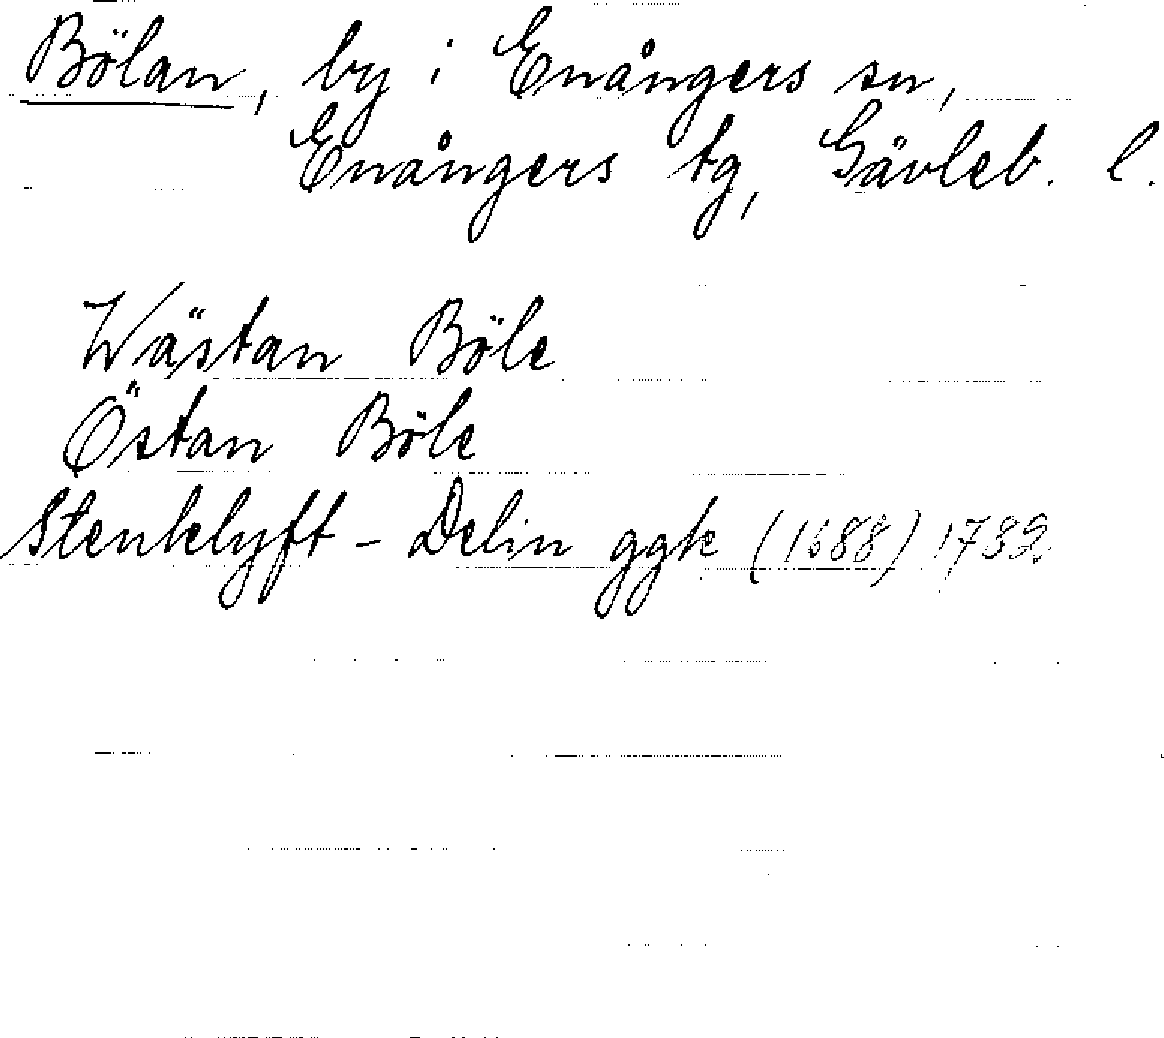 Bölan, by i Enångers sn,
Enångers tg, Gävleb. l.
Wästan Böle
Östan Böle
Stenklyft - Delin ggk (1688) 1732